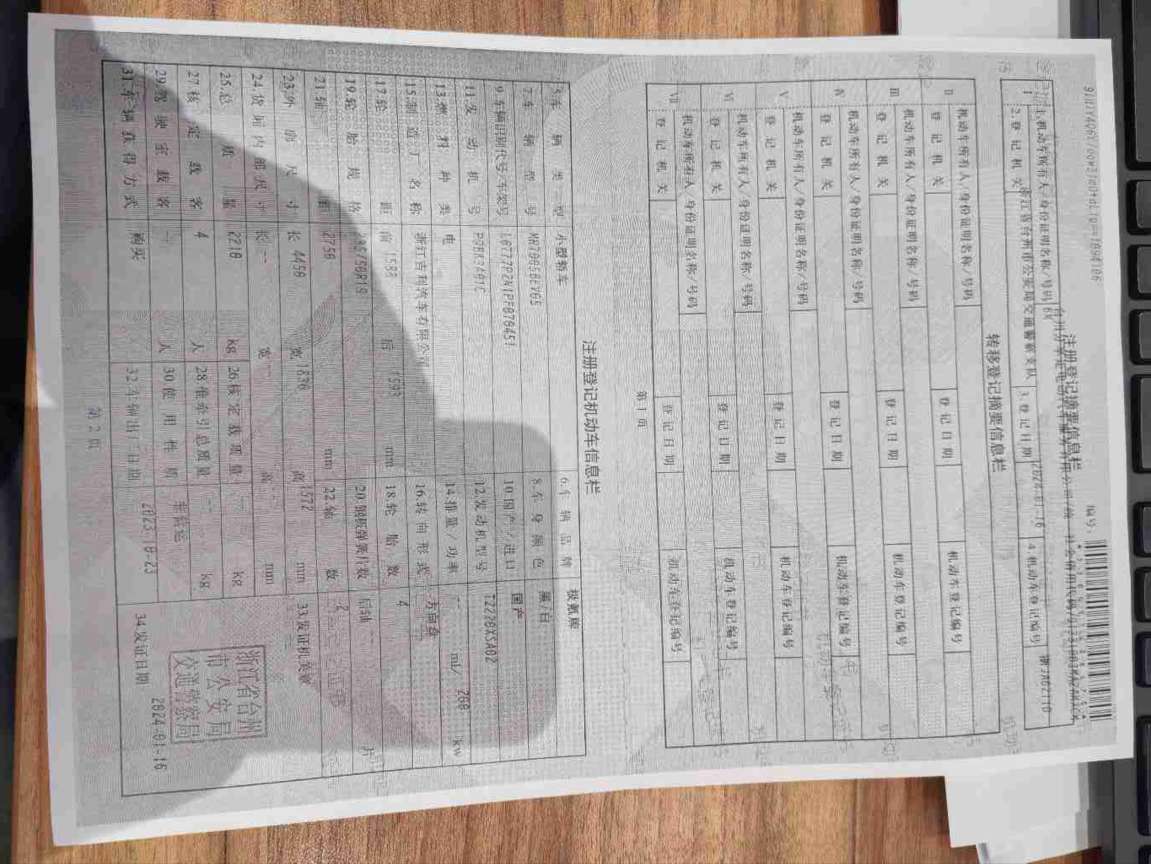 编号:
注册登记摘要信息栏
1.机动车所有人/身份证明名称/号码
2.登记机关 浙江省台州市公安局交通警察支队 3.登记日期 2024-01-16 4.机动车登记编号
转移登记摘要信息栏
II 机动车所有人/身份证明名称/号码
登记机关 登记日期 机动车登记编号
III 机动车所有人/身份证明名称/号码
登记机关 登记日期 机动车登记编号
IV 机动车所有人/身份证明名称/号码
登记机关 登记日期 机动车登记编号
V 机动车所有人/身份证明名称/号码
登记机关 登记日期 机动车登记编号
VI 机动车所有人/身份证明名称/号码
登记机关 登记日期 机动车登记编号
VII 机动车所有人/身份证明名称/号码
登记机关 登记日期 机动车登记编号
第1页
注册登记机动车信息栏
5.车辆类型 小型轿车 6.车辆品牌 极氪牌
7.车辆型号 8.车身颜色 黑/白
9.车辆识别代号/车架号 10.国产/进口 国产
11.发动机号 12.发动机型号 TZ220XSA02
13.燃料种类 电 14.排量/功率 -- ml/ 200 kw
15.制造厂名称 浙江吉利汽车有限公司 16.转向形式 方向盘
17.轮距 前 1583 后 1593 mm 18.轮胎数 4
19.轮胎规格 20.钢板弹簧片数 后轴 -- 片
21.轴距 2750 mm 22.轴数 2
23.外廓尺寸 长 4450 宽 1836 高 1572 mm
24.货厢内部尺寸 长 -- 宽 -- 高 -- mm
25.总质量 2210 kg 26.核定载质量 -- kg
27.核定载客 4 人 28.准牵引总质量 -- kg
29.驾驶室载客 -- 人 30.使用性质 非营运
31.车辆获得方式 购买 32.车辆出厂日期 2023-10-23
33.发证机关章
浙江省台州
市公安局
交通警察局
34.发证日期 2024-01-16
第2页